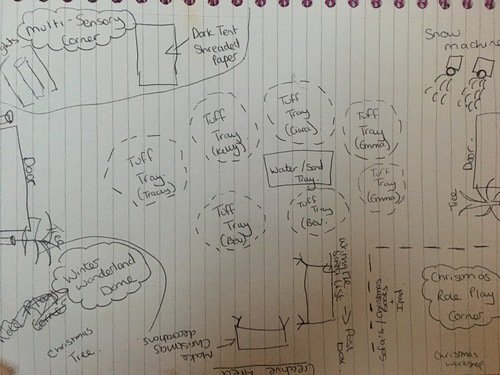 Multi-Sensory
Corner
Dark Tent
Shreaded
Paper
Snow
machine
Tuff
Tray
(Kelly)
Tuff
Tray
(Ciara)
Tuff
Tray
(Emma)
Tuff
Tray.
(Tracey)
Water/Sand
Tray.
Tuff
Tray
(Emma)
Tuff
Tray
(Bev)
Tuff
Tray
(Bev)
Door
Door.
Tree
Tree
Winter
Wonderland
Dome
Christmas
Tree.
Make
Christmas
decorations
Creative Area
Writing the
Santa List
→ Post
Box
Sofa's/Christmas
books
+
Ipad
Christmas
Role Play
Corner
Christmas
Workshop